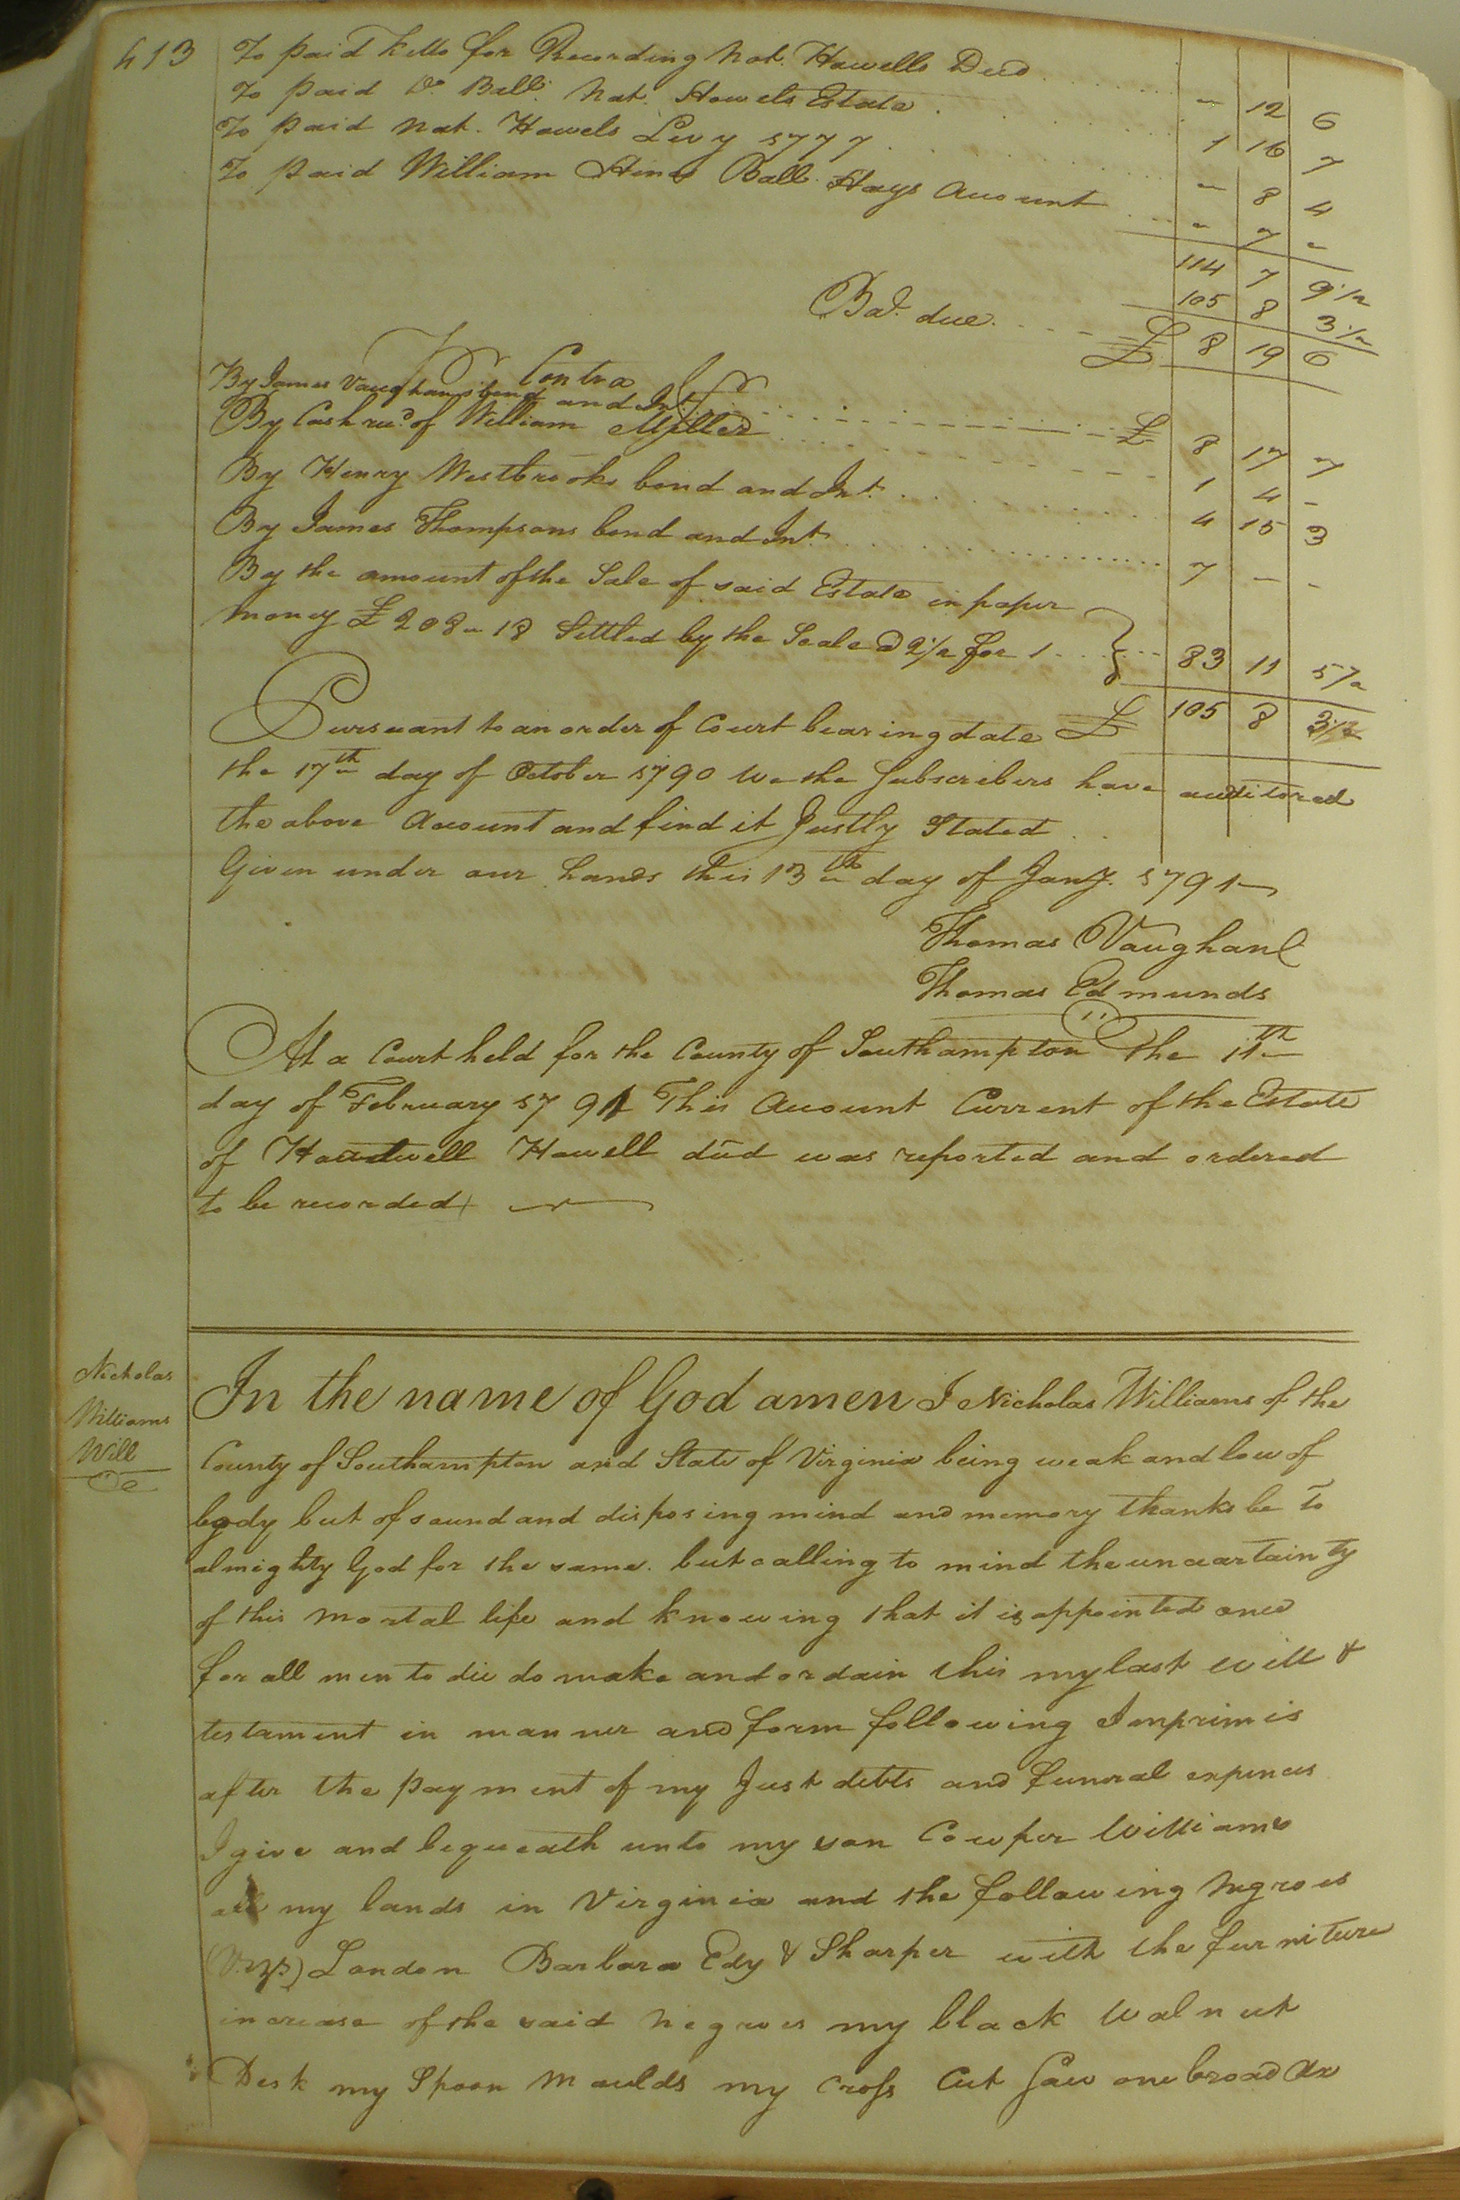 413
To paid Kello for Recording Nat. Howells Deed - 12 6
To paid Do. Bell. Nat. Howels Estate . 1 16 7
To paid Nat. Howels Levy 1777 - 8 4
To paid William Hines Ball. Hays Account - 7 -
114 7 9 1/2
105 8 3 1/2
Bal. due. £ 8 19 6
Contra
By James Vaughans bond and Int. £ 8 17 7
By Cash recd. of William Miller 1 4 -
By Henry Westbrooks bond and Int. 4 15 3
By James Thompsons bond and Int. 7 - -
By the amount of the Sale of said Estate in paper
money £ 208 - 18 Settled by the Scale @ 2 1/2 for 1 83 11 5 1/2
£ 105 8 3 1/2
Pursuant to an order of Court bearing date
the 17th day of October 1790 We the Subscribers have auditored
the above Account and find it Justly Stated
Given under our hands this 13th day of Jany. 1791
Thomas Vaughan
Thomas Edmunds
At a Court held for the County of Southampton the 11th
day of February 1791 This Account Current of the Estate
of Howell decd was reported and ordered
to be recorded
Nicholas
Williams
Will
In the name of God amen I Nicholas Williams of the
County of Southampton and State of Virginia being weak and low of
body but of sound and disposing mind and memory thanks be to
almighty God for the same. but calling to mind the uncartainty
of this mortal life and knowing that it is appointed once
for all men to die do make and ordain this my last will &
testament in manner and form following Imprimis
after the payment of my Just debts and funeral expences
I give and bequeath unto my son Cowper Williams
all my lands in Virginia and the following Negroes
(Vizt) London Barbara Edy & Sharper with the furniture
increase of the said Negroes my black Walnut
Desk my Spoon Moulds my Cross Cut Saw one broad Ax